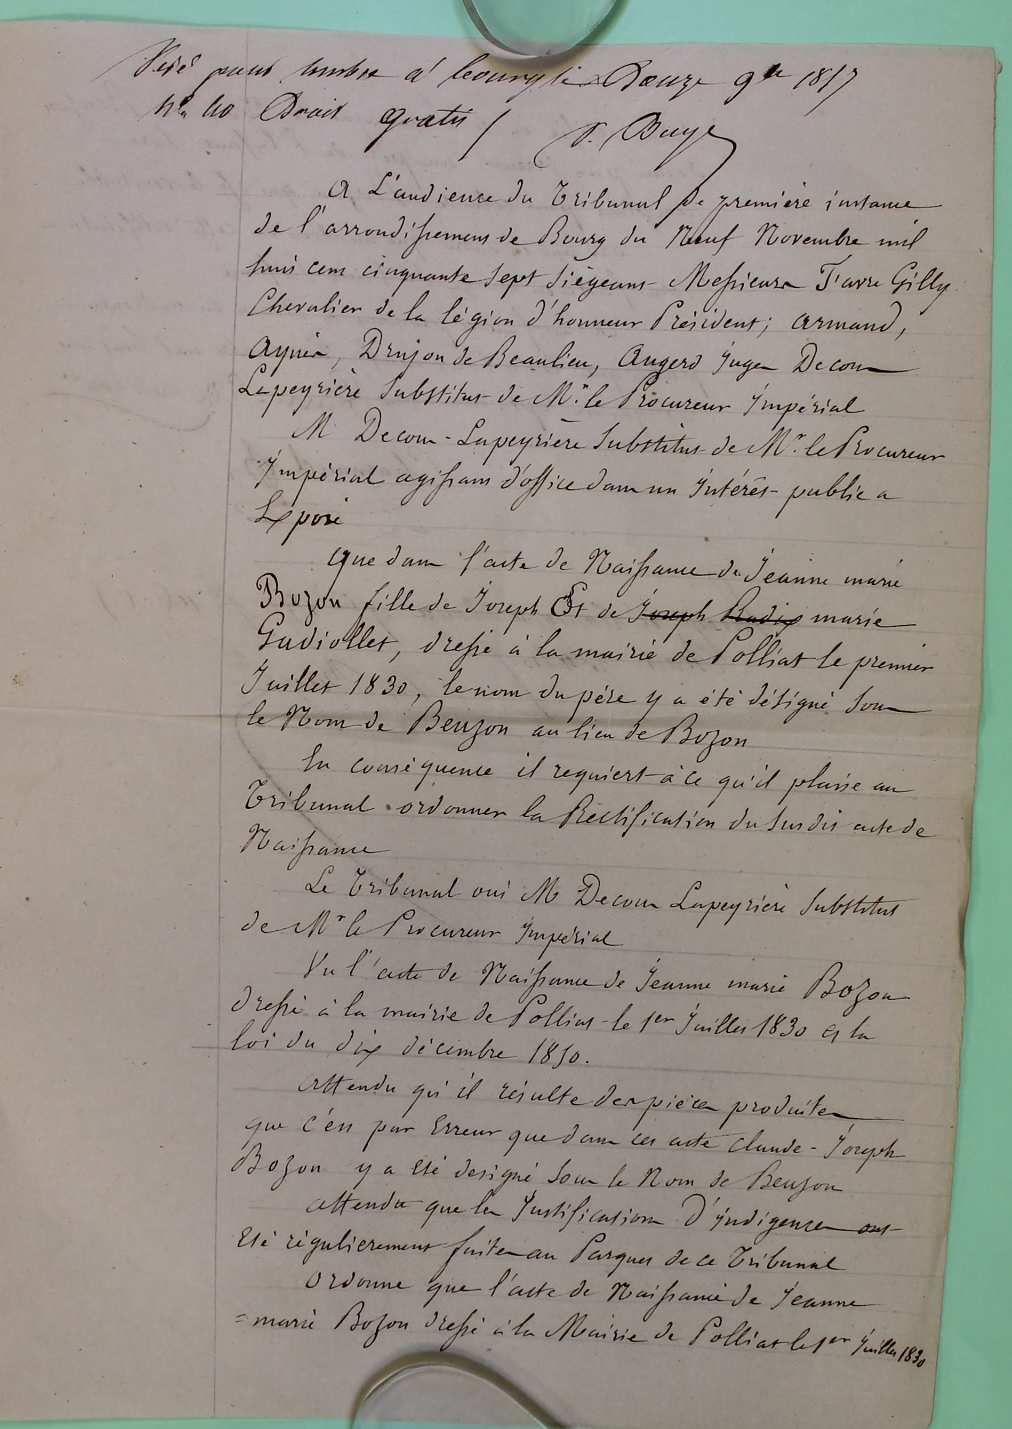 Visé pour timbre à Bourg le Douze 9bre 1857
n° 40 Droit gratis /
A L'audience du Tribunal de première instance
de l'arrondissement de Bourg du Neuf Novembre mil
huit cent cinquante Sept Siégeant Messieurs Favre Gilly
Chevalier de la légion d'honneur Président; Armand,
Aynès, Drujon de Beaulieu, Angerd Juges Decous
Lapeyrière Substitut de Mr. le Procureur Impérial
M Decous-Lapeyrière Substitut de Mr. le Procureur
Impérial agissant d'office dans un Intérêt public a
Exposé
que dans l'acte de Naissance de Jeanne marie
Bozon fille de Joseph Et de Joseph Radix marie
Gudiollet, dressé à la mairie de Polliat le premier
Juillet 1830, le nom du père y a été désigné Sous
le Nom de Beuzon au lieu de Bozon
En conséquence il requiert à ce qu'il plaise au
Tribunal ordonner la Rectification du Susdit acte de
Naissance
Le Tribunal oui M Decous Lapeyrière Substitut
de Mr le Procureur Impérial
Vu l'acte de Naissance de Jeanne marie Bozon
dressé à la mairie de Polliat le 1er Juillet 1830 et la
loi du dix décembre 1850.
Attendu qu'il résulte des pièces produites
que c'est par Erreur que dans cet acte Claude-Joseph
Bozon y a Eté designé Sous le Nom de Beuzon
attendu que les Justifications D'Indigences ont
Eté régulierement faites au Parquet de ce Tribunal
Ordonne que l'acte de Naissance de Jeanne
=marie Bozon dressé à la Mairie de Polliat le 1er Juillet 1830